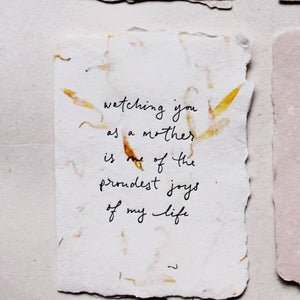 watching you
as a mother
is one of the
proudest joys
of my life